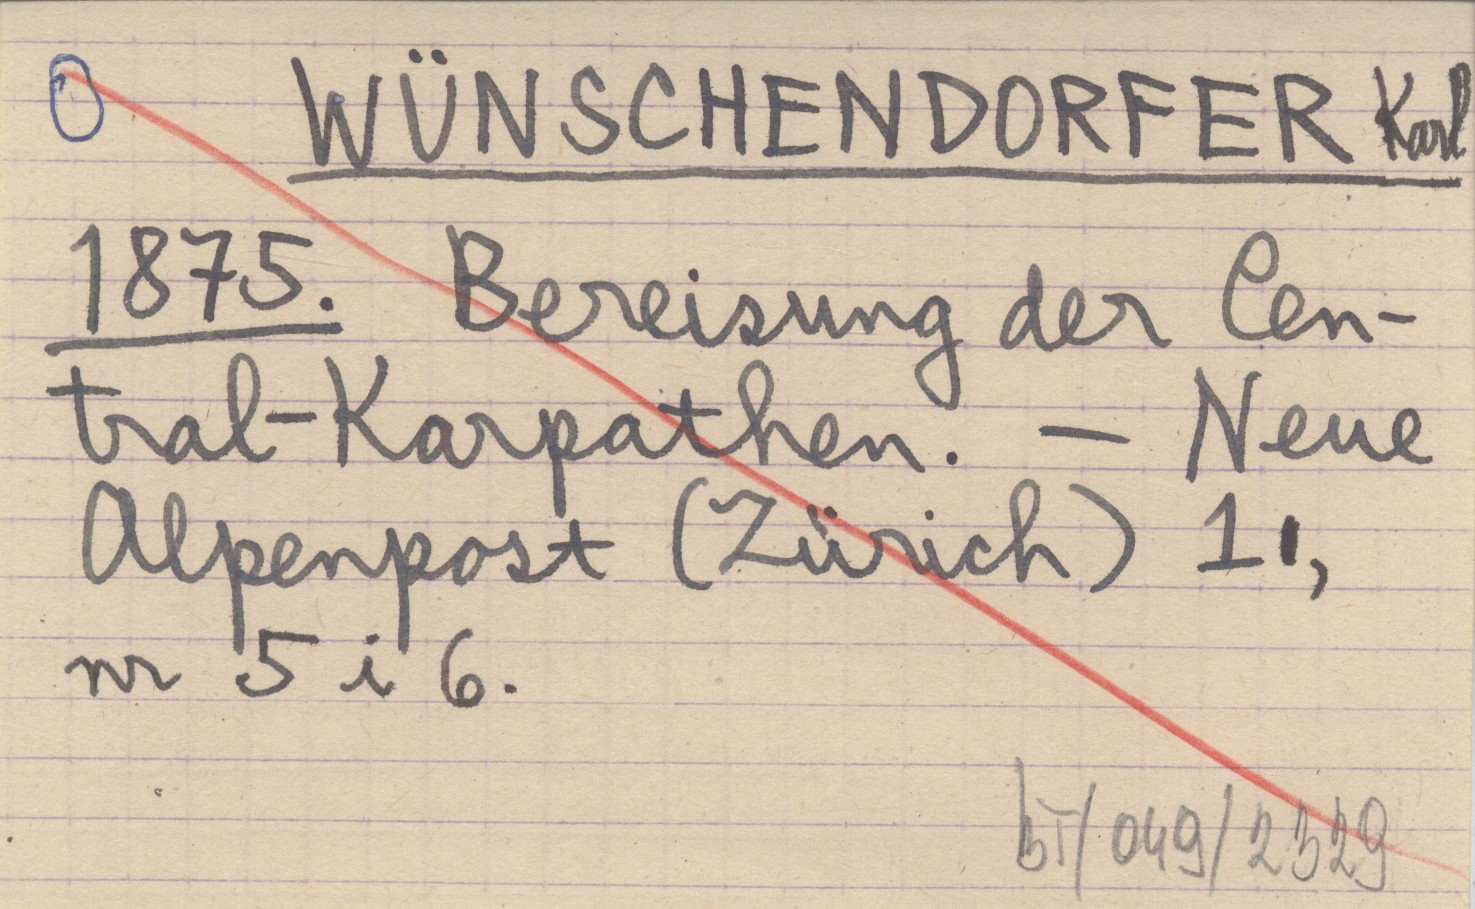 WÜNSCHENDORFER Karl
1875. Bereisung der Cen-
tral-Karpathen. – Neue
Alpenpost (Zürich) 11,
nr 5 i 6.
bT/049/2329